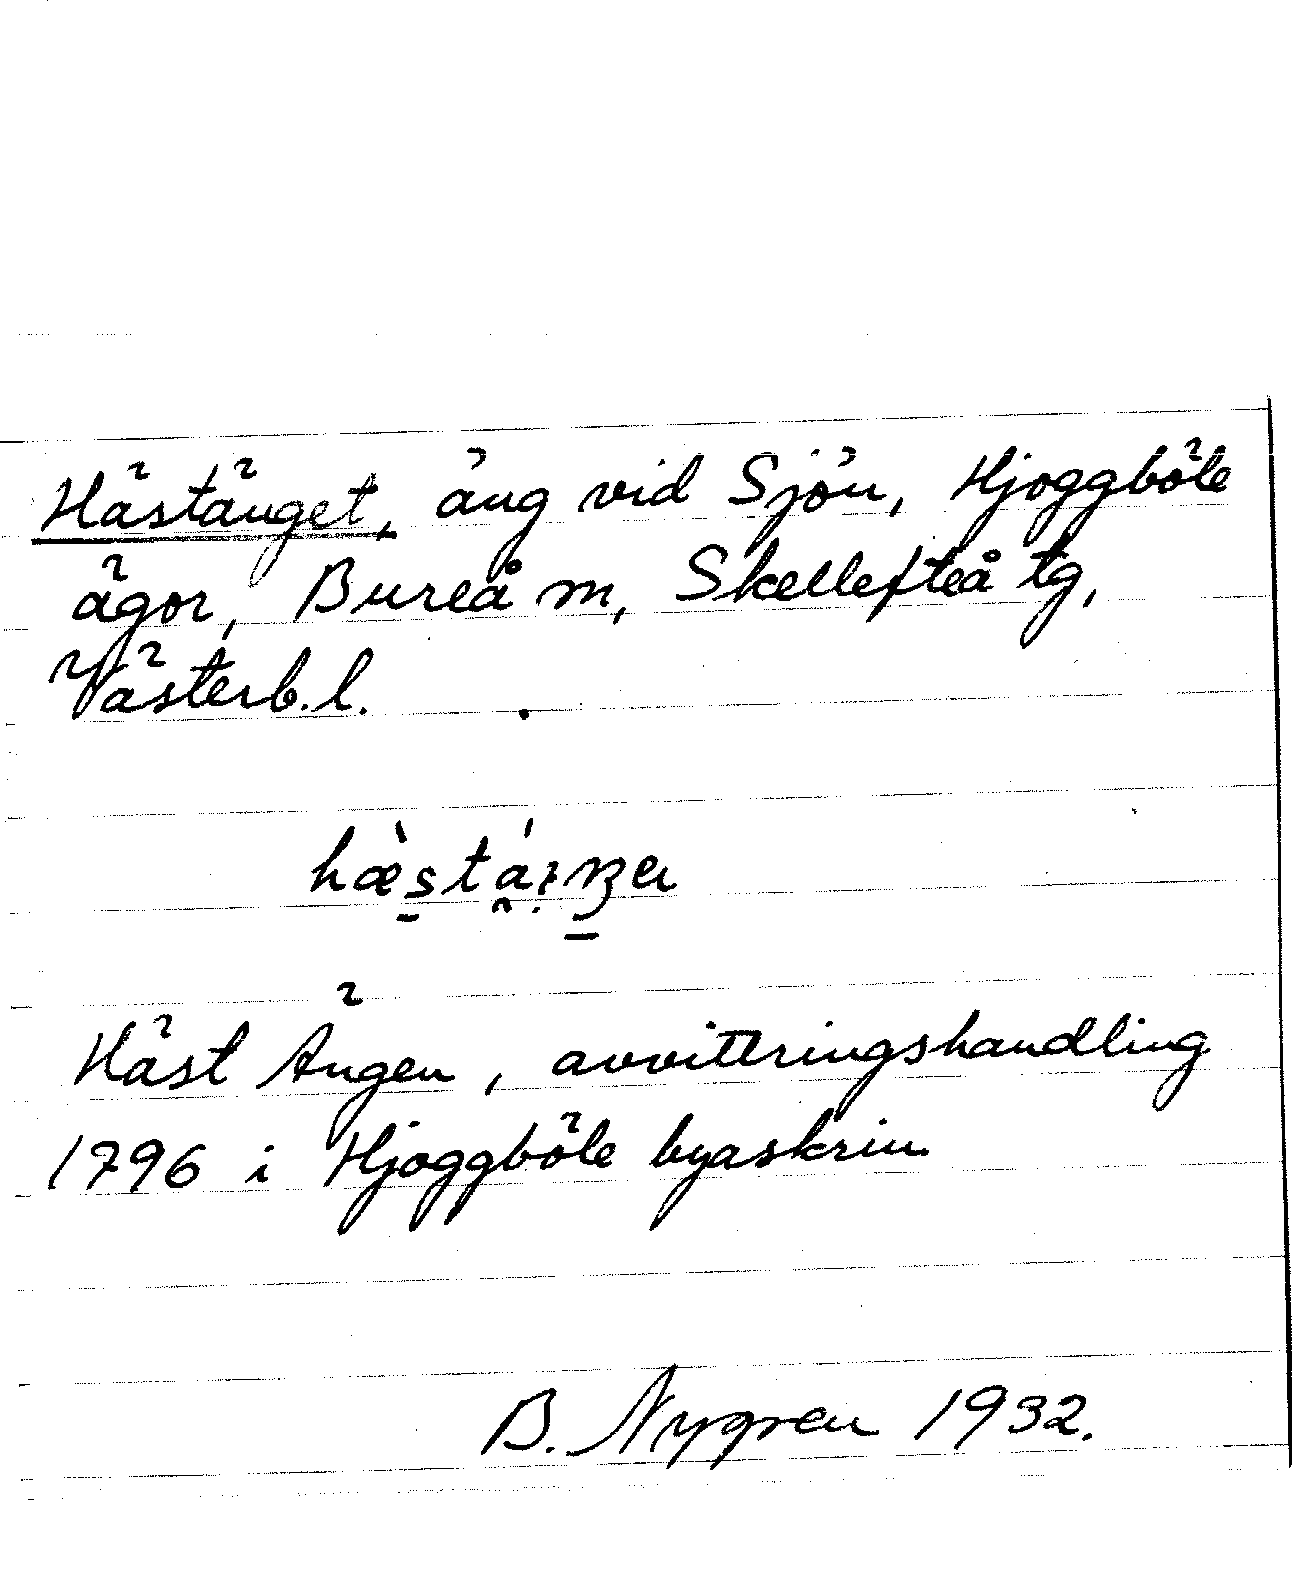 Hästänget, äng vid Sjön, Hjoggböle
ägor, Bureå m, Skellefteå tg,
Västerb. l.
Häst Ängen, avvittringshandling
1796 i Hjoggböle byaskrin.
B. Nygren 1932.